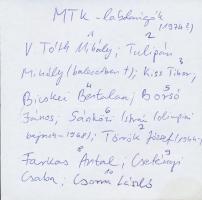 MTK - labdarúgók
(1974?)
V Tóth Mihály; Tulipán 2
Mihály (balesetben †); Kiss Tibor; 3
Bicskei Bertalan; Borsó 4 5
János; Sárközi István (olimpiai 6
bajnok-1968); Török József (1944- 7
Farkas Antal; Csetényi 8 9
Csaba; Csorna László 10